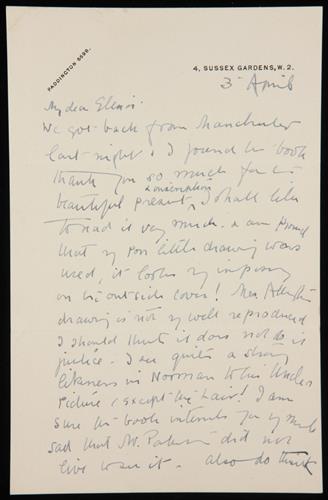 PADDINGTON 8698.
4, SUSSEX GARDENS, W. 2.
3 April
My dear
We got back from Manchester
last night & I found the book
thank you so much for a
beautiful present, I shall like
to read it very much. & am proud
that my poor little drawing was
used, it looks v imposing
on the outside cover! Mrs
drawing is not v well reproduced
I should think it does not do it
justice. I see quite a strong
likeness in Norman to his Uncles
Picture (except the hair! I am
sure the book interests you v much
sad that Mr did not
live to see it. also do think